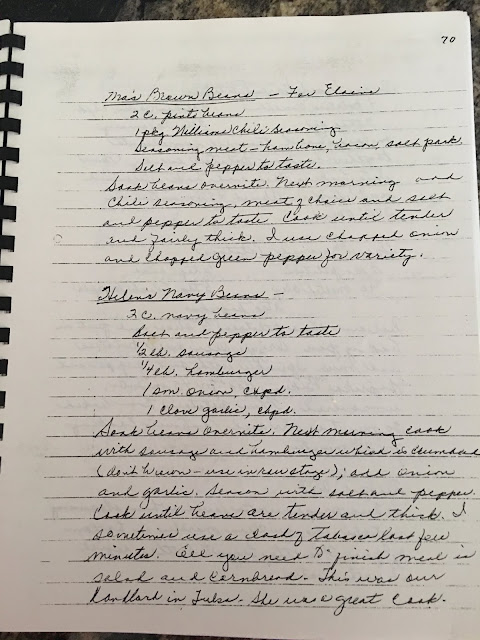 70
Ma's Brown Beans - For Elaine
2 c. pinto beans
1 pkg Williams Chili Seasoning
Seasoning meat - ham bone, bacon, salt pork.
Salt and pepper to taste.
Soak beans overnite. Next morning add
chili seasoning, meat of choice and salt
and pepper to taste. Cook until tender
and fairly thick. I use chopped onion
and chopped green pepper for variety.
Helen's Navy Beans -
2 c. navy beans
Salt and pepper to taste
1/2 lb. sausage
1/4 lb. hamburger
1 sm onion, chpd.
1 clove garlic, chpd.
Soak beans overnite. Next morning cook
with sausage and hamburger which is crumbled
(don't brown - use in raw stage); add onion
and garlic. Season with salt and pepper.
Cook until beans are tender and thick. I
sometimes use a dash of Tabasco last few
minutes. All you need to finish meal is
salad and cornbread. This was our
landlord in Tulsa. She was a great cook.